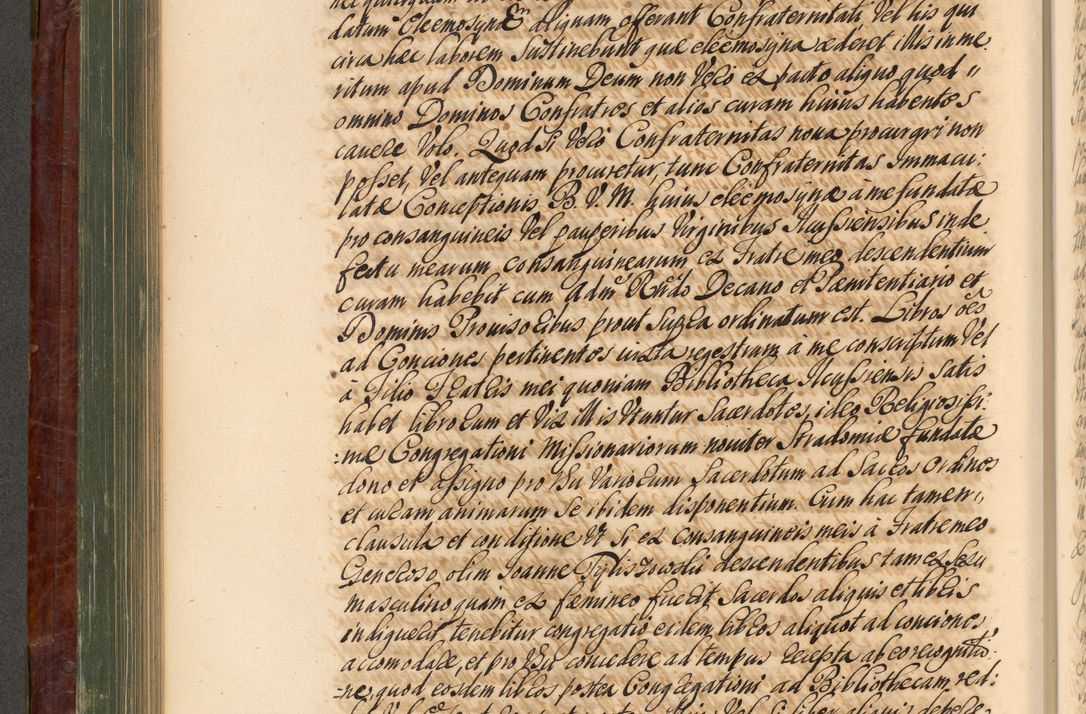 datum Eleemosynam aliquam offerant Confraternitati Vel his qui
circa hæc laborem Sustinebunt quæ eleemosyna cederet illis in me
ritum apud Dominum Deum non Vero ex pacto aliquo quod
omnino Dominos Confratres et alios curam huius habentes
cauere Volo. Quod Si Vero Confraternitas noua procurari non
posset, Vel antequam procuretur, tunc Confraternitas Immacu:
latæ Conceptionis B. V. M. huius eleemosynæ à me fundatæ
pro consanguineis Vel pauperibus Virginibus Ilcussiensibus in de
fectu mearum consanguinearum ex Fratre meo descendentium
curam habebit cum Adm Rndo Decano et Pænitentiario et
Dominis Prouisoribus prout Supra ordinatum est. Libros oẽs
ad Conciones pertinentes iuxta regestrum à me conscriptum Vel
à Filio Fratris mei quoniam Bibliotheca Ilcussiensis Satis
habet librorum et Vix illis Vtuntur Sacerdotes, ideo Religiosissi:
:mæ Congregationi Missionariorum nouiter Stradomiæ fundatæ
dono et assigno pro Vsu Variorum Sacerdotum ad Sacros Ordines
et curam animarum Se ibidem disponentium. Cum hac tamen
clausula et conditione Vt Si ex consanguineis meis à Fratre meo
Generoso, olim Joanne descendentibus tam ex Sexu
masculino quam ex fæmineo fuerit Sacerdos aliquis et libris
indiguerit, tenebitur congregatio eidem libros aliquot ad conciones
accomodare, et pro Vsu concedere ad tempus recepta ab eo recognitio:
:ne, quod eosdem libros postea Congregationi ad Bibliothecam red: